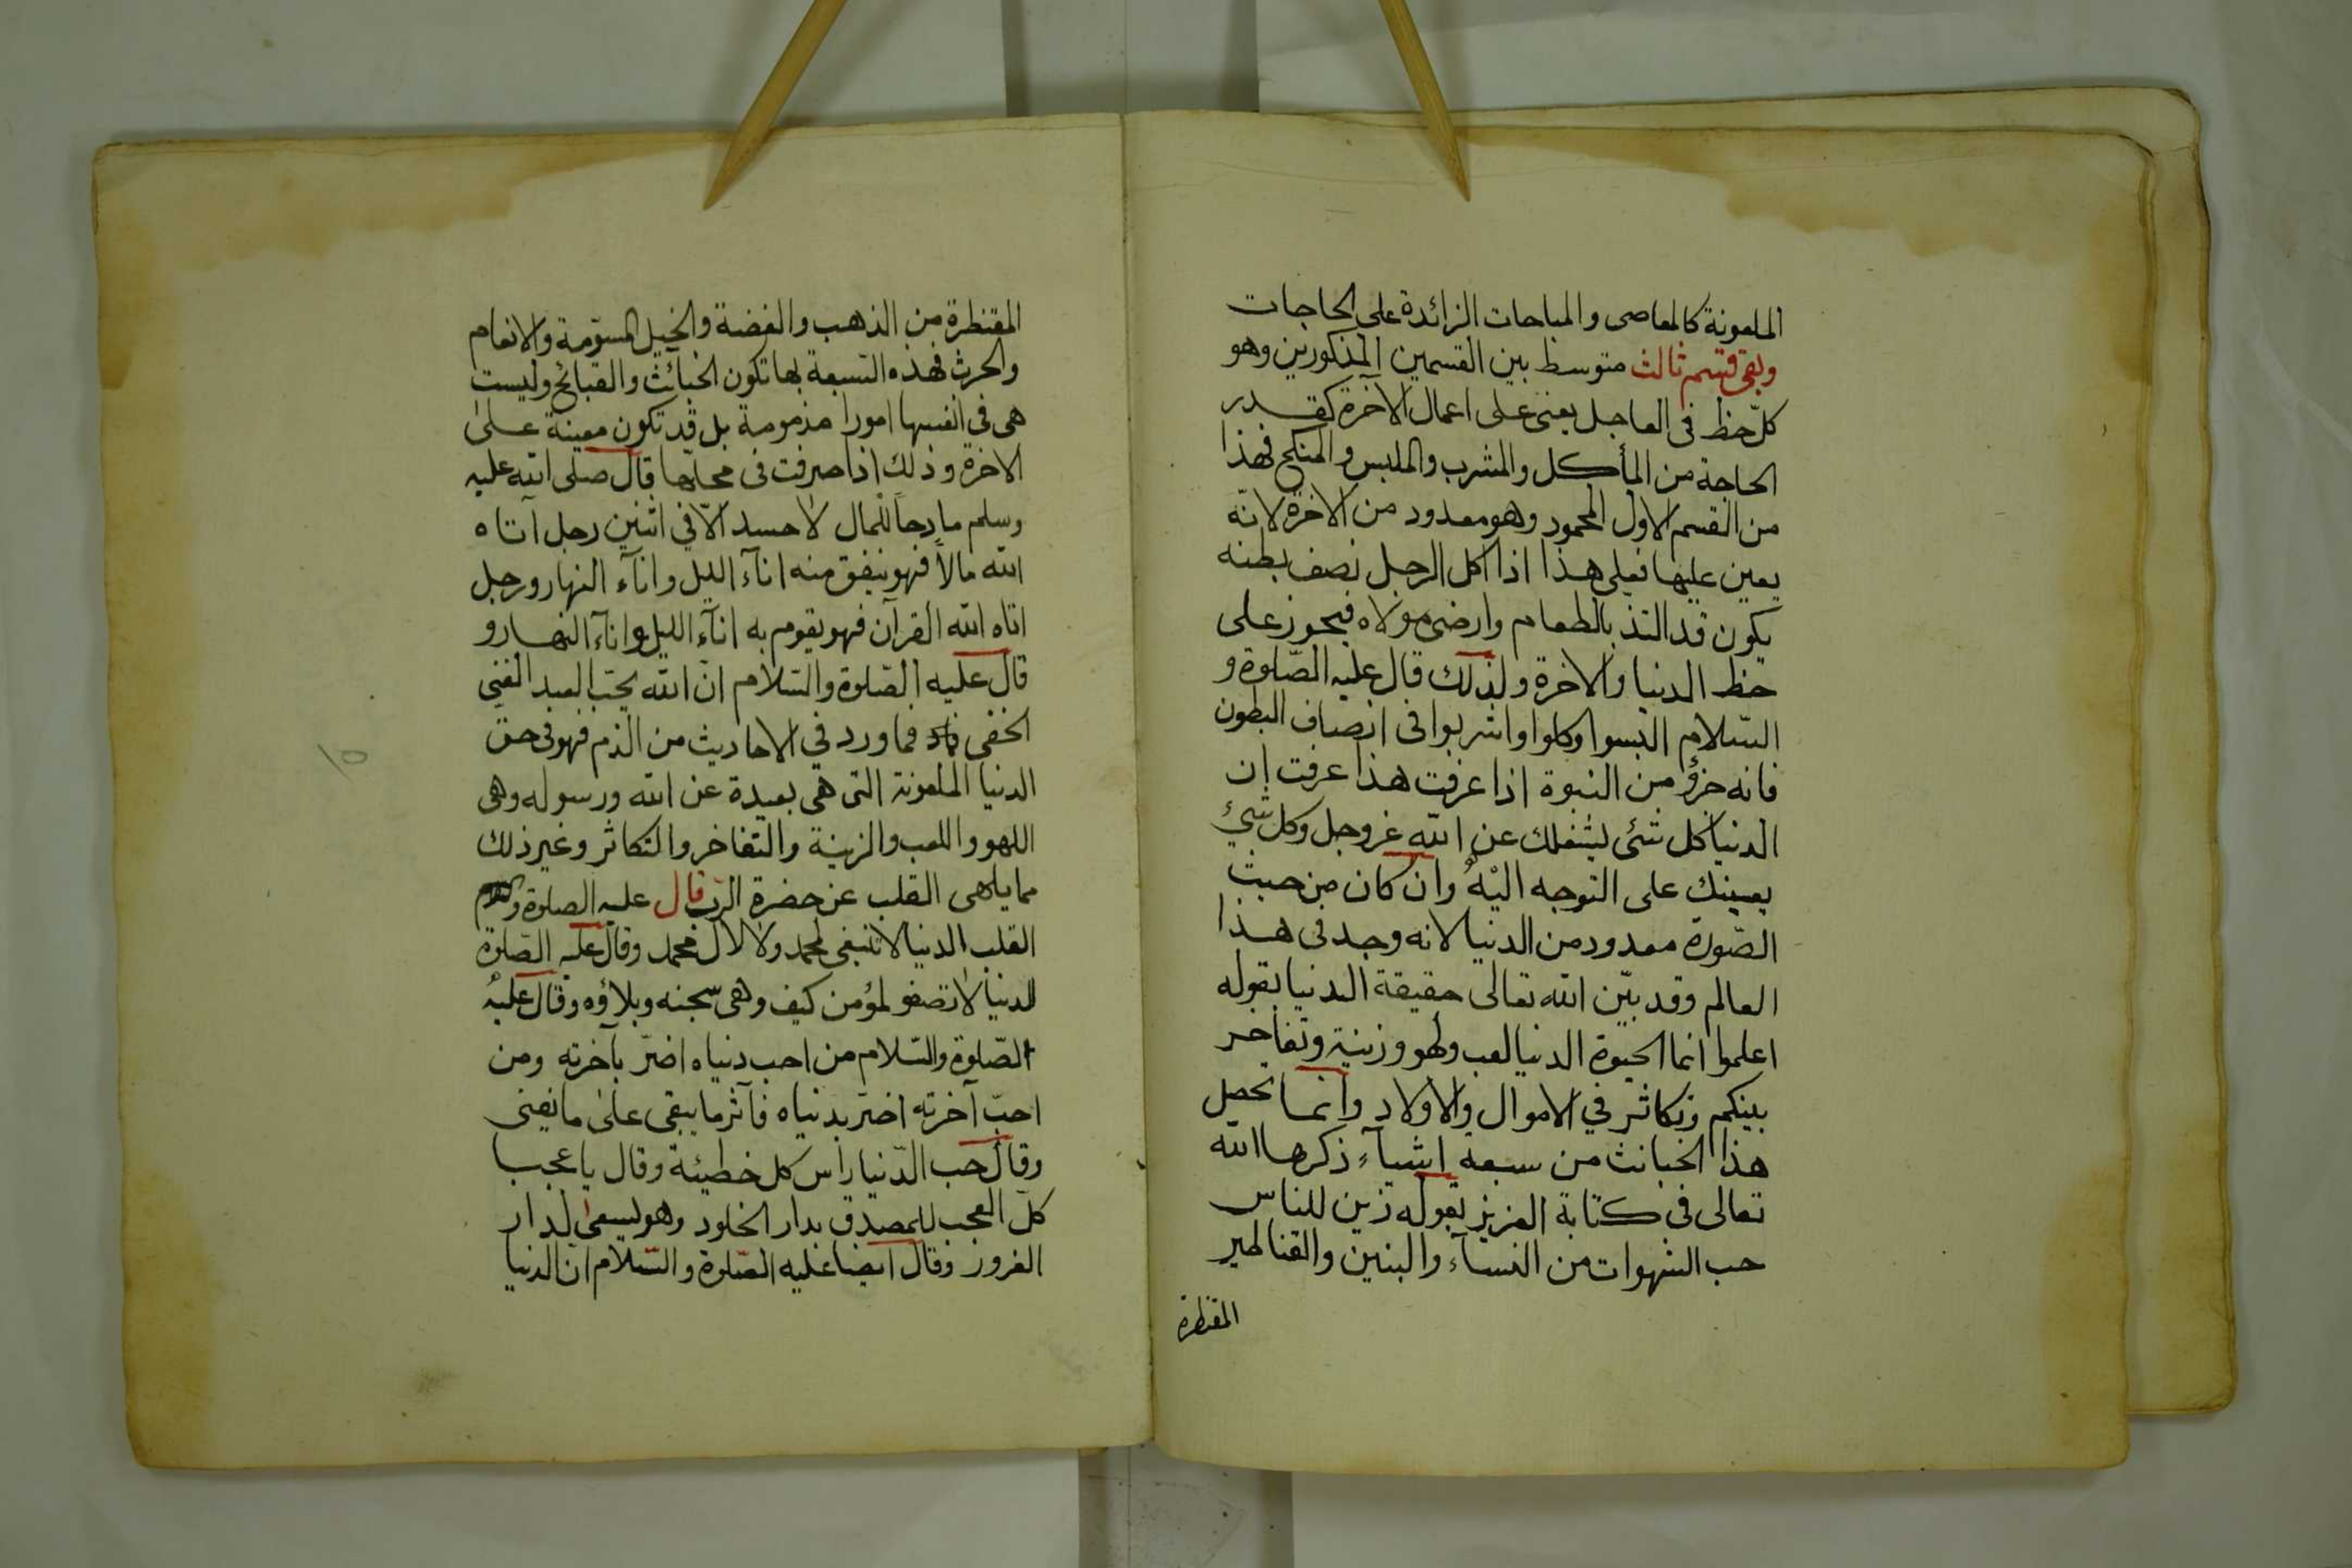 الملعونة كالمعاصى والمباحات الزائدة على الحاجات
وبقى قسم ثالث متوسط بين القسمين المذكورين وهو
كلّ حظ فى العاجل يعنى على اعمال الآخرة كقدر
الحاجة من المأكل والمشرب والملبس والمنكح فهذا
من القسم الاول المحمود وهو معدود من الاخرة لانّه
يعين عليها فعلى هذا اذا اكل الرجل نصف بطنه
يكون قد التذ بالطعام وارضى مولاه فيجوز على
حظ الدنيا والاخرة ولذلك قال عليه الصّلوة و
السّلام البسوا وكلوا واشربوا فى انصاف البطون
فانه جزؤ من النبوة اذا عرفت هذا عرفت ان
الدنيا كل شئى يشغلك عن الله عز وجل وكل شئ
يعينك على التوجه اليه وان كان من حيث
الصّورة معدود من الدنيا لانه وجد فى هذا
العالم وقد بيّن الله تعالى حقيقة الدنيا بقوله
اعلموا انما الحيوة الدنيا لعب ولهو وزينة وتفاخر
بينكم وتكاثر في الاموال والاولاد وانما تحصل
هذا الخبائث من سبعة اشيآء ذكرها الله
تعالى فى كتابة العزيز بقوله زين للناس
حب الشهوات من النسآء والبنين والقناطير
المقنطرة
المقنطرة من الذهب والفضة والخيل المسوّمة والانعام
والحرث فهذه السبعة بها تكون الخبائث والقبائح وليست
هى في انفسها امورا مذمومة بل قد تكون معينة على
الاخرة وذلك اذا صرفت فى محلها قال صلى الله عليه
وسلم مادحا للمال لا حسد الّا في اثنين رجل آتاه
الله مالاً فهو ينفق منه انآء الليل واناء النهار ورجل
اتاه الله القرآن فهو يقوم به انآء الليل وانآء النهار و
قال عليه الصّلوة والسّلام ان الله يحبّ العبد الغني
الخفى فما ورد في الاحاديث من الذم فهو فى حق
الدنيا الملعونة التى هى بعيدة عن الله ورسوله وهى
اللهو واللعب والزينة والتفاخر والتكاثر وغير ذلك
مما يلهى القلب عن حضرة الرب قال عليه الصلوة والسلام
القلب الدنيا لا تنبغى لمحمد ولا لال محمد وقال عليه الصّلوة
الدنيا لا تصفو لمؤمن كيف وهى سجنه وبلاؤه وقال عليه
الصّلوة والسّلام من احب دنياه اضرّ بآخرته ومن
احبّ آخرته اضرّ بدنياه فآثر ما يبقى على ما يفنى
وقال حب الدّنيا راس كل خطيئة وقال يا عجبا
كلّ العجب للمصدق بدار الخلود وهو يسعى لدار
الغرور وقال ايضا عليه الصّلوة والسّلام ان الدنيا